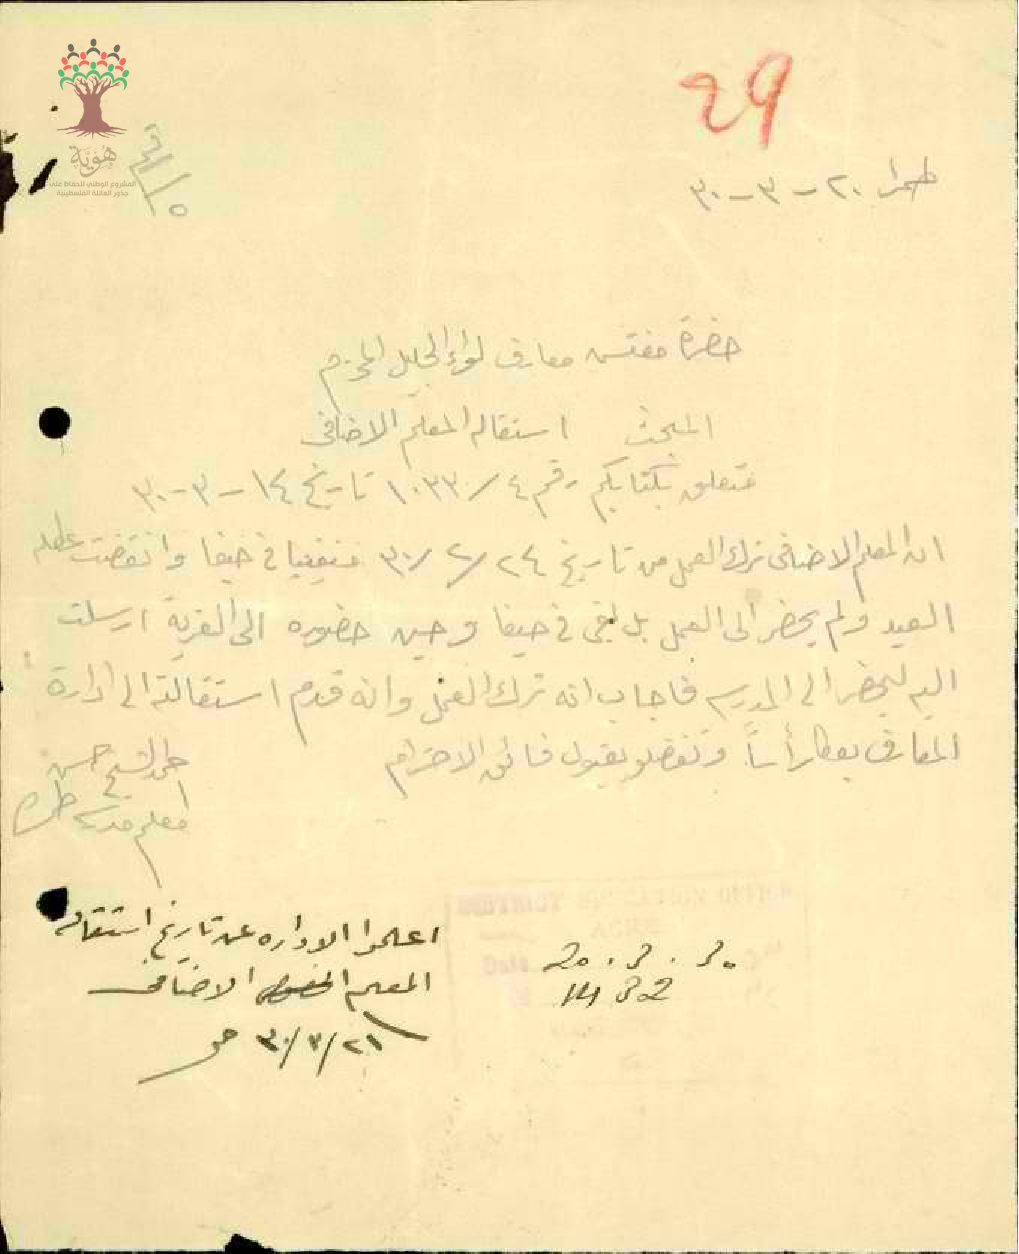 ٢٩
هُوِيَّة
المشروع الوطني للحفاظ على
جذور العائلة الفلسطينية
طمرا ٢٠ - ٣ - ٣٠
حضرة مفتش معارف لواء الجليل المحترم
المبحث استقالة المعلم الاضافي
فتعلق بكتابكم رقم ٤ / ١٠٣٣ تاريخ ١٤ - ٣ - ٣٠
ان المعلم الاضافي ترك العمل من تاريخ ٢٤ / ٢ / ٣٠ في حيفا وانقضت عطله
العيد ولم يحضر الى العمل بل بقي في حيفا وحين حضوره الى القرية ارسلت
اليه ليحضر الى المدرسه فاجاب انه ترك العمل وانه قدم استقالته الى ادارة
المعارف رأساً وتفضلو بقبول فائق الاحترام
الشيخ حسن
معلم مدرسة طمره
DISTRICT EDUCATION OFFICE
ACRE
Date 20 . 3 . 30
1432
اعلموا الاداره عن تاريخ استقالة
المعلم الاضافي
٢١ / ٣ / ٣٠